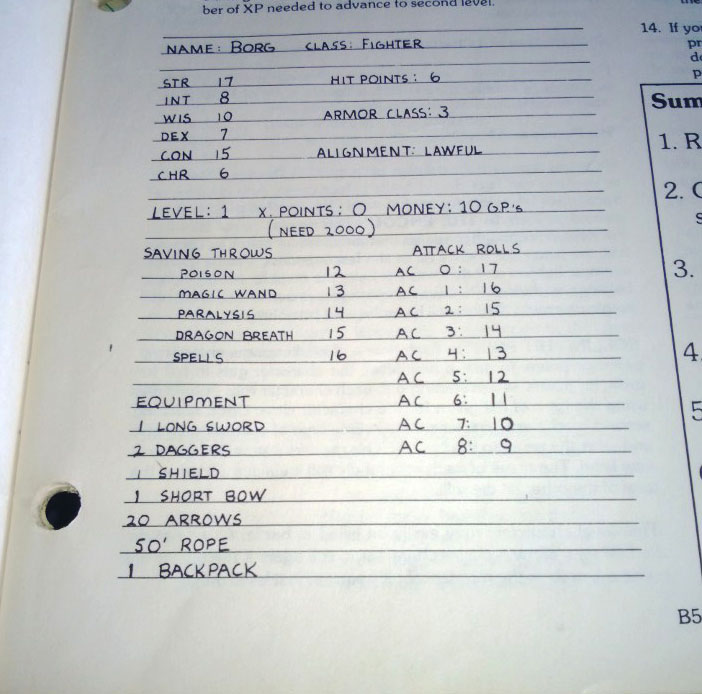 ber of XP needed to advance to second level.
NAME: BORG CLASS: FIGHTER
STR 17 HIT POINTS: 6
INT 8
WIS 10 ARMOR CLASS: 3
DEX 7
CON 15 ALIGNMENT: LAWFUL
CHR 6
LEVEL: 1 X. POINTS: 0 MONEY: 10 G.P.'s
(NEED 2000)
SAVING THROWS ATTACK ROLLS
POISON 12 AC 0: 17
MAGIC WAND 13 AC 1: 16
PARALYSIS 14 AC 2: 15
DRAGON BREATH 15 AC 3: 14
SPELLS 16 AC 4: 13
AC 5: 12
EQUIPMENT AC 6: 11
1 LONG SWORD AC 7: 10
2 DAGGERS AC 8: 9
1 SHIELD
1 SHORT BOW
20 ARROWS
50' ROPE
1 BACKPACK
14. If you
pr
d
p
Sum
1. R
2. C
s
3.
4.
5
B5